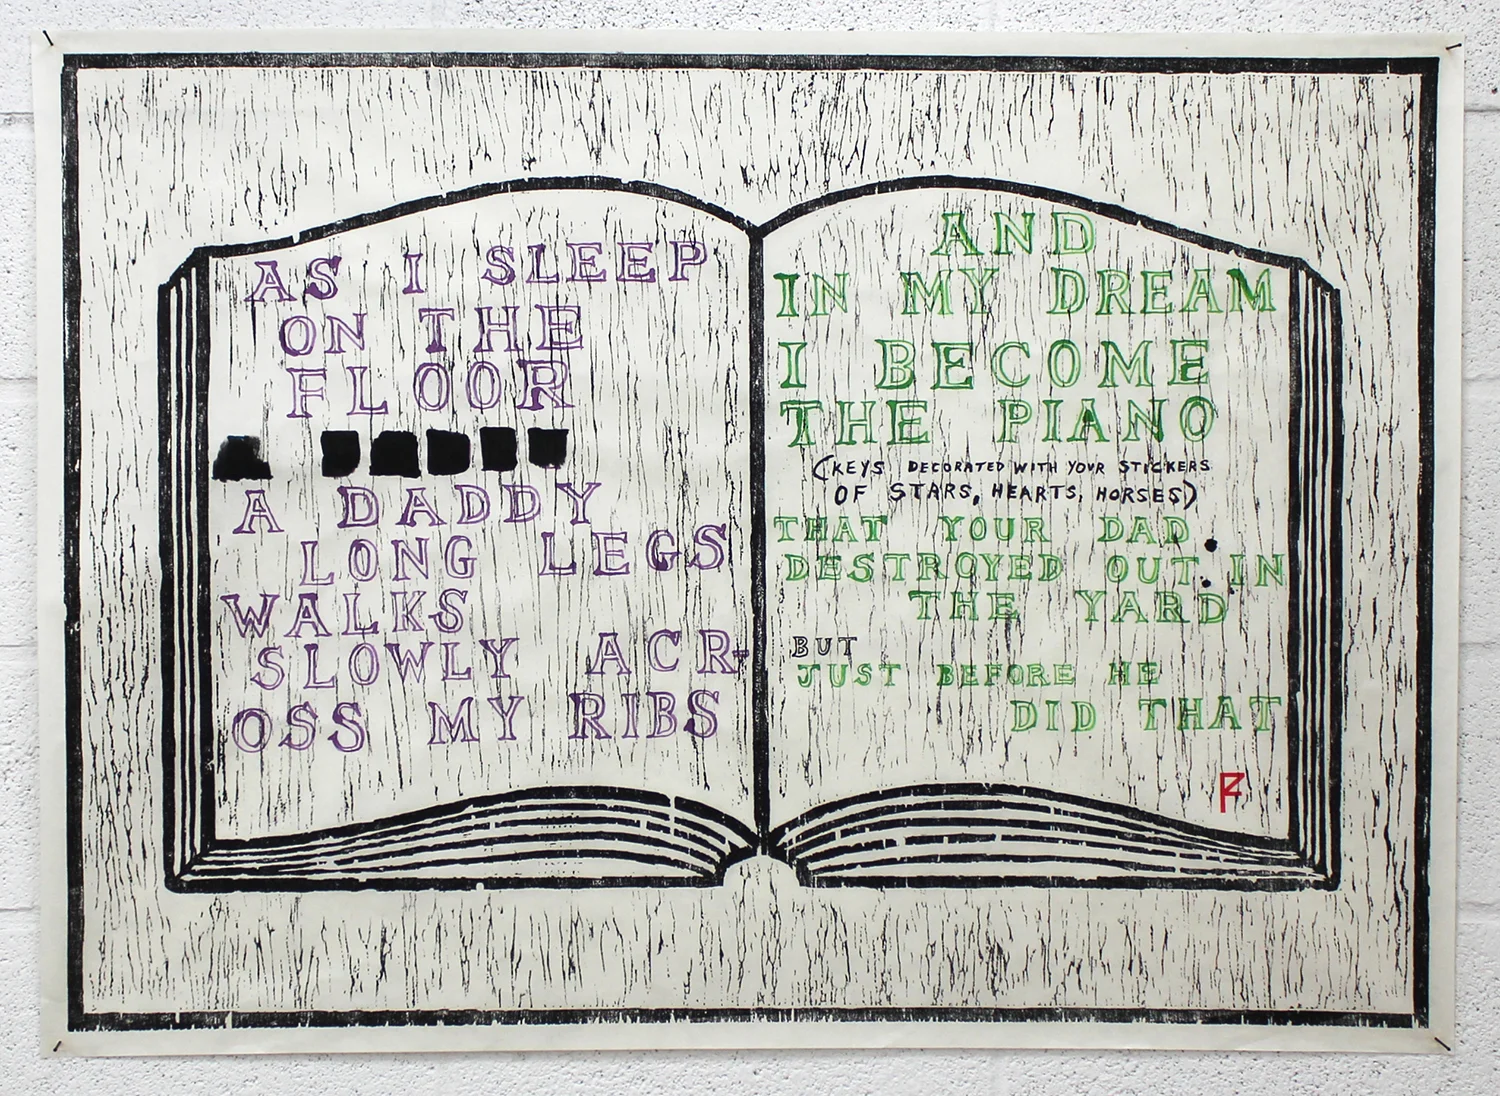 AS I SLEEP
ON THE
FLOOR
A DADDY
LONG LEGS
WALKS
SLOWLY ACR-
OSS MY RIBS
AND
IN MY DREAM
I BECOME
THE PIANO
(KEYS DECORATED WITH YOUR STICKERS
OF STARS, HEARTS, HORSES)
THAT YOUR DAD
DESTROYED OUT IN
THE YARD
BUT
JUST BEFORE HE
DID THAT